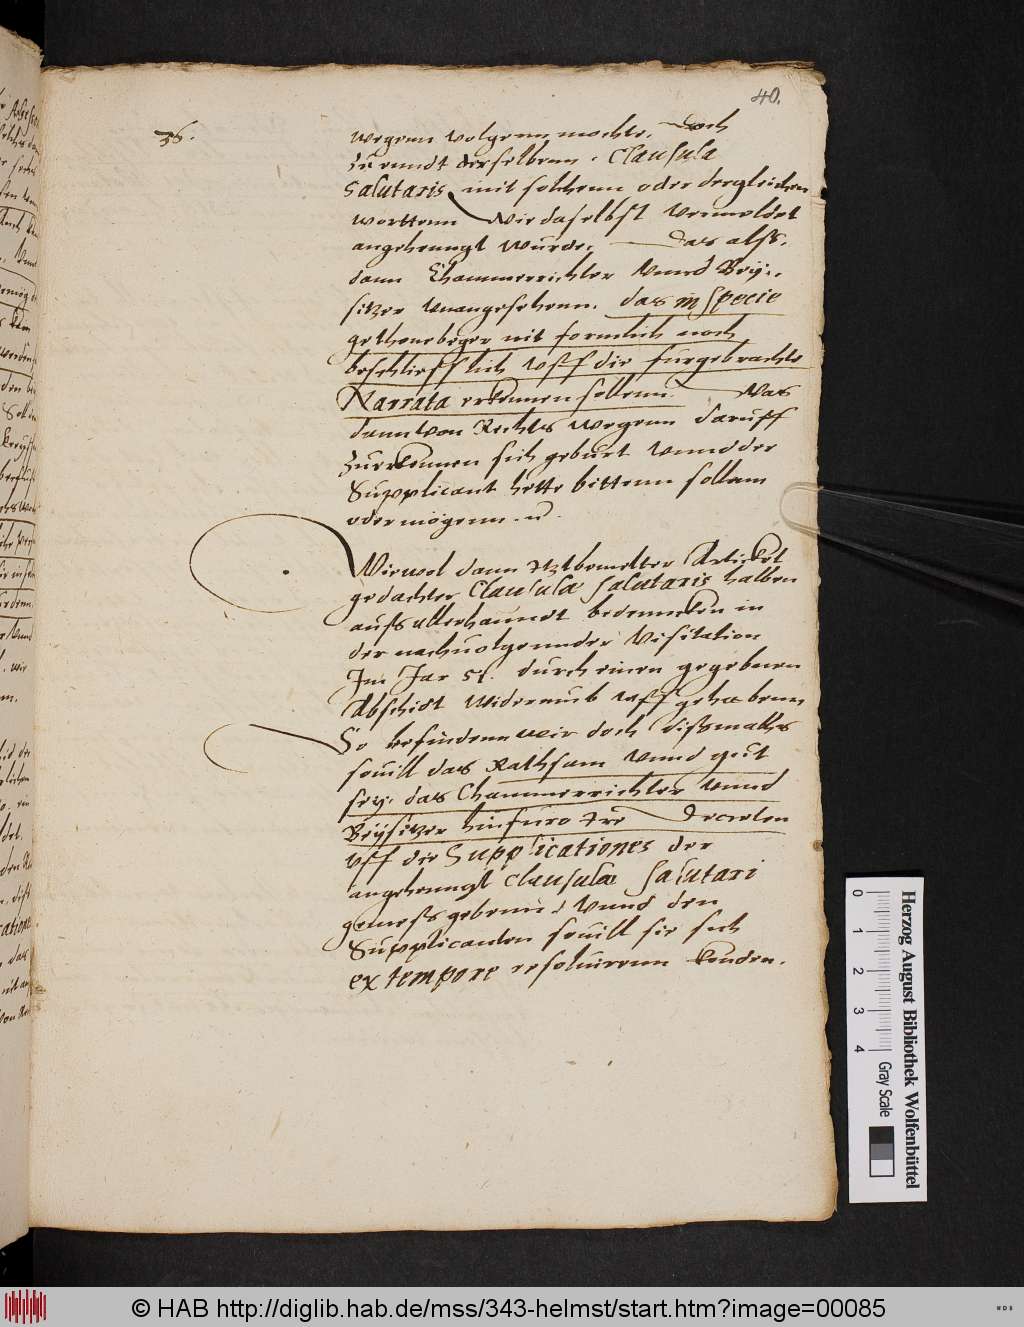 40.
56.
wegenn volgenn mochte. Doch
zu enndt derselbenn. Clausula
Salutaris mit solchenn oder dergleichen
worttenn wie daselbst vermeldet
angehenngt wurde. Das alß,
dann Chammerrichter Unnd Bey,,
sitzer Unangesehenn. das in specie
gethone beger nit formlich noch
beschließlich uff die furgebrachte
Narrata erkennen sollenn. Was
dann von Rechts wegenn daruff
zuerkennen sich geburt Unnd der
Supplicant hette bittenn sollenn
oder mögenn.
Wiewol dann Itztbemelter Artickel
gedachter Clausula Salutaris halben
auß allerhanndt bedenncken in
der nachuolgennder Visitation
Im Jar 51. durch einen gegebnen
Abschidt widerumb uffgehabenn
So befinden wir doch dißmalhs
souill das Rathsam Unnd gut
sey. das Chammerrichter Unnd
Beysitzer hinfuro Ire Decreten
uff die Supplicationes der
angehenngt clausula Salutari
gemeß gebenn, Unnd den
Supplicanten souill sie sich
ex tempore resoluirenn konden.
Herzog August Bibliothek Wolfenbüttel
0 1 2 3 4
Gray Scale
© HAB http://diglib.hab.de/mss/343-helmst/start.htm?image=00085
WDB